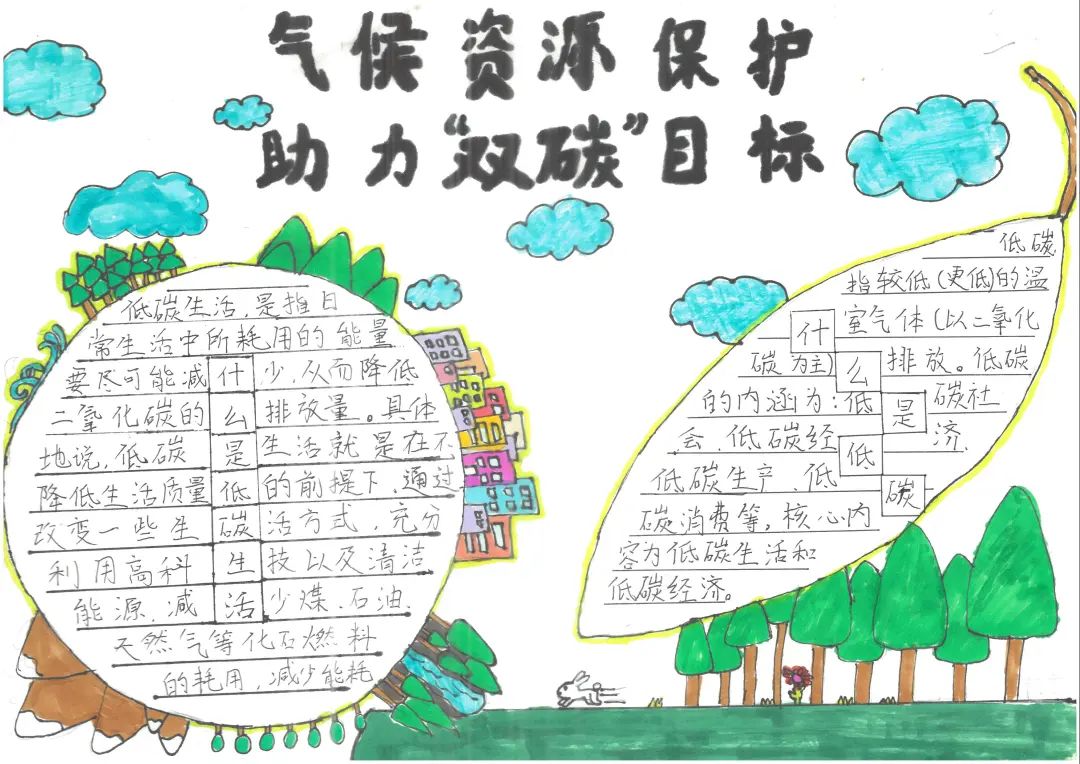 气候资源保护
助力“双碳”目标
什么是低碳生活
低碳生活,是指日
常生活中所耗用的能量
要尽可能减少,从而降低
二氧化碳的排放量。具体
地说,低碳生活就是在不
降低生活质量的前提下,通过
改变一些生活方式,充分
利用高科技以及清洁
能源,减少煤、石油、
天然气等化石燃料
的耗用,减少能耗
什么是低碳
低碳
指较低(更低)的温
室气体(以二氧化
碳为主)排放。低碳
的内涵为:低碳社
会、低碳经济
低碳生产、低
碳消费等,核心内
容为低碳生活和
低碳经济。